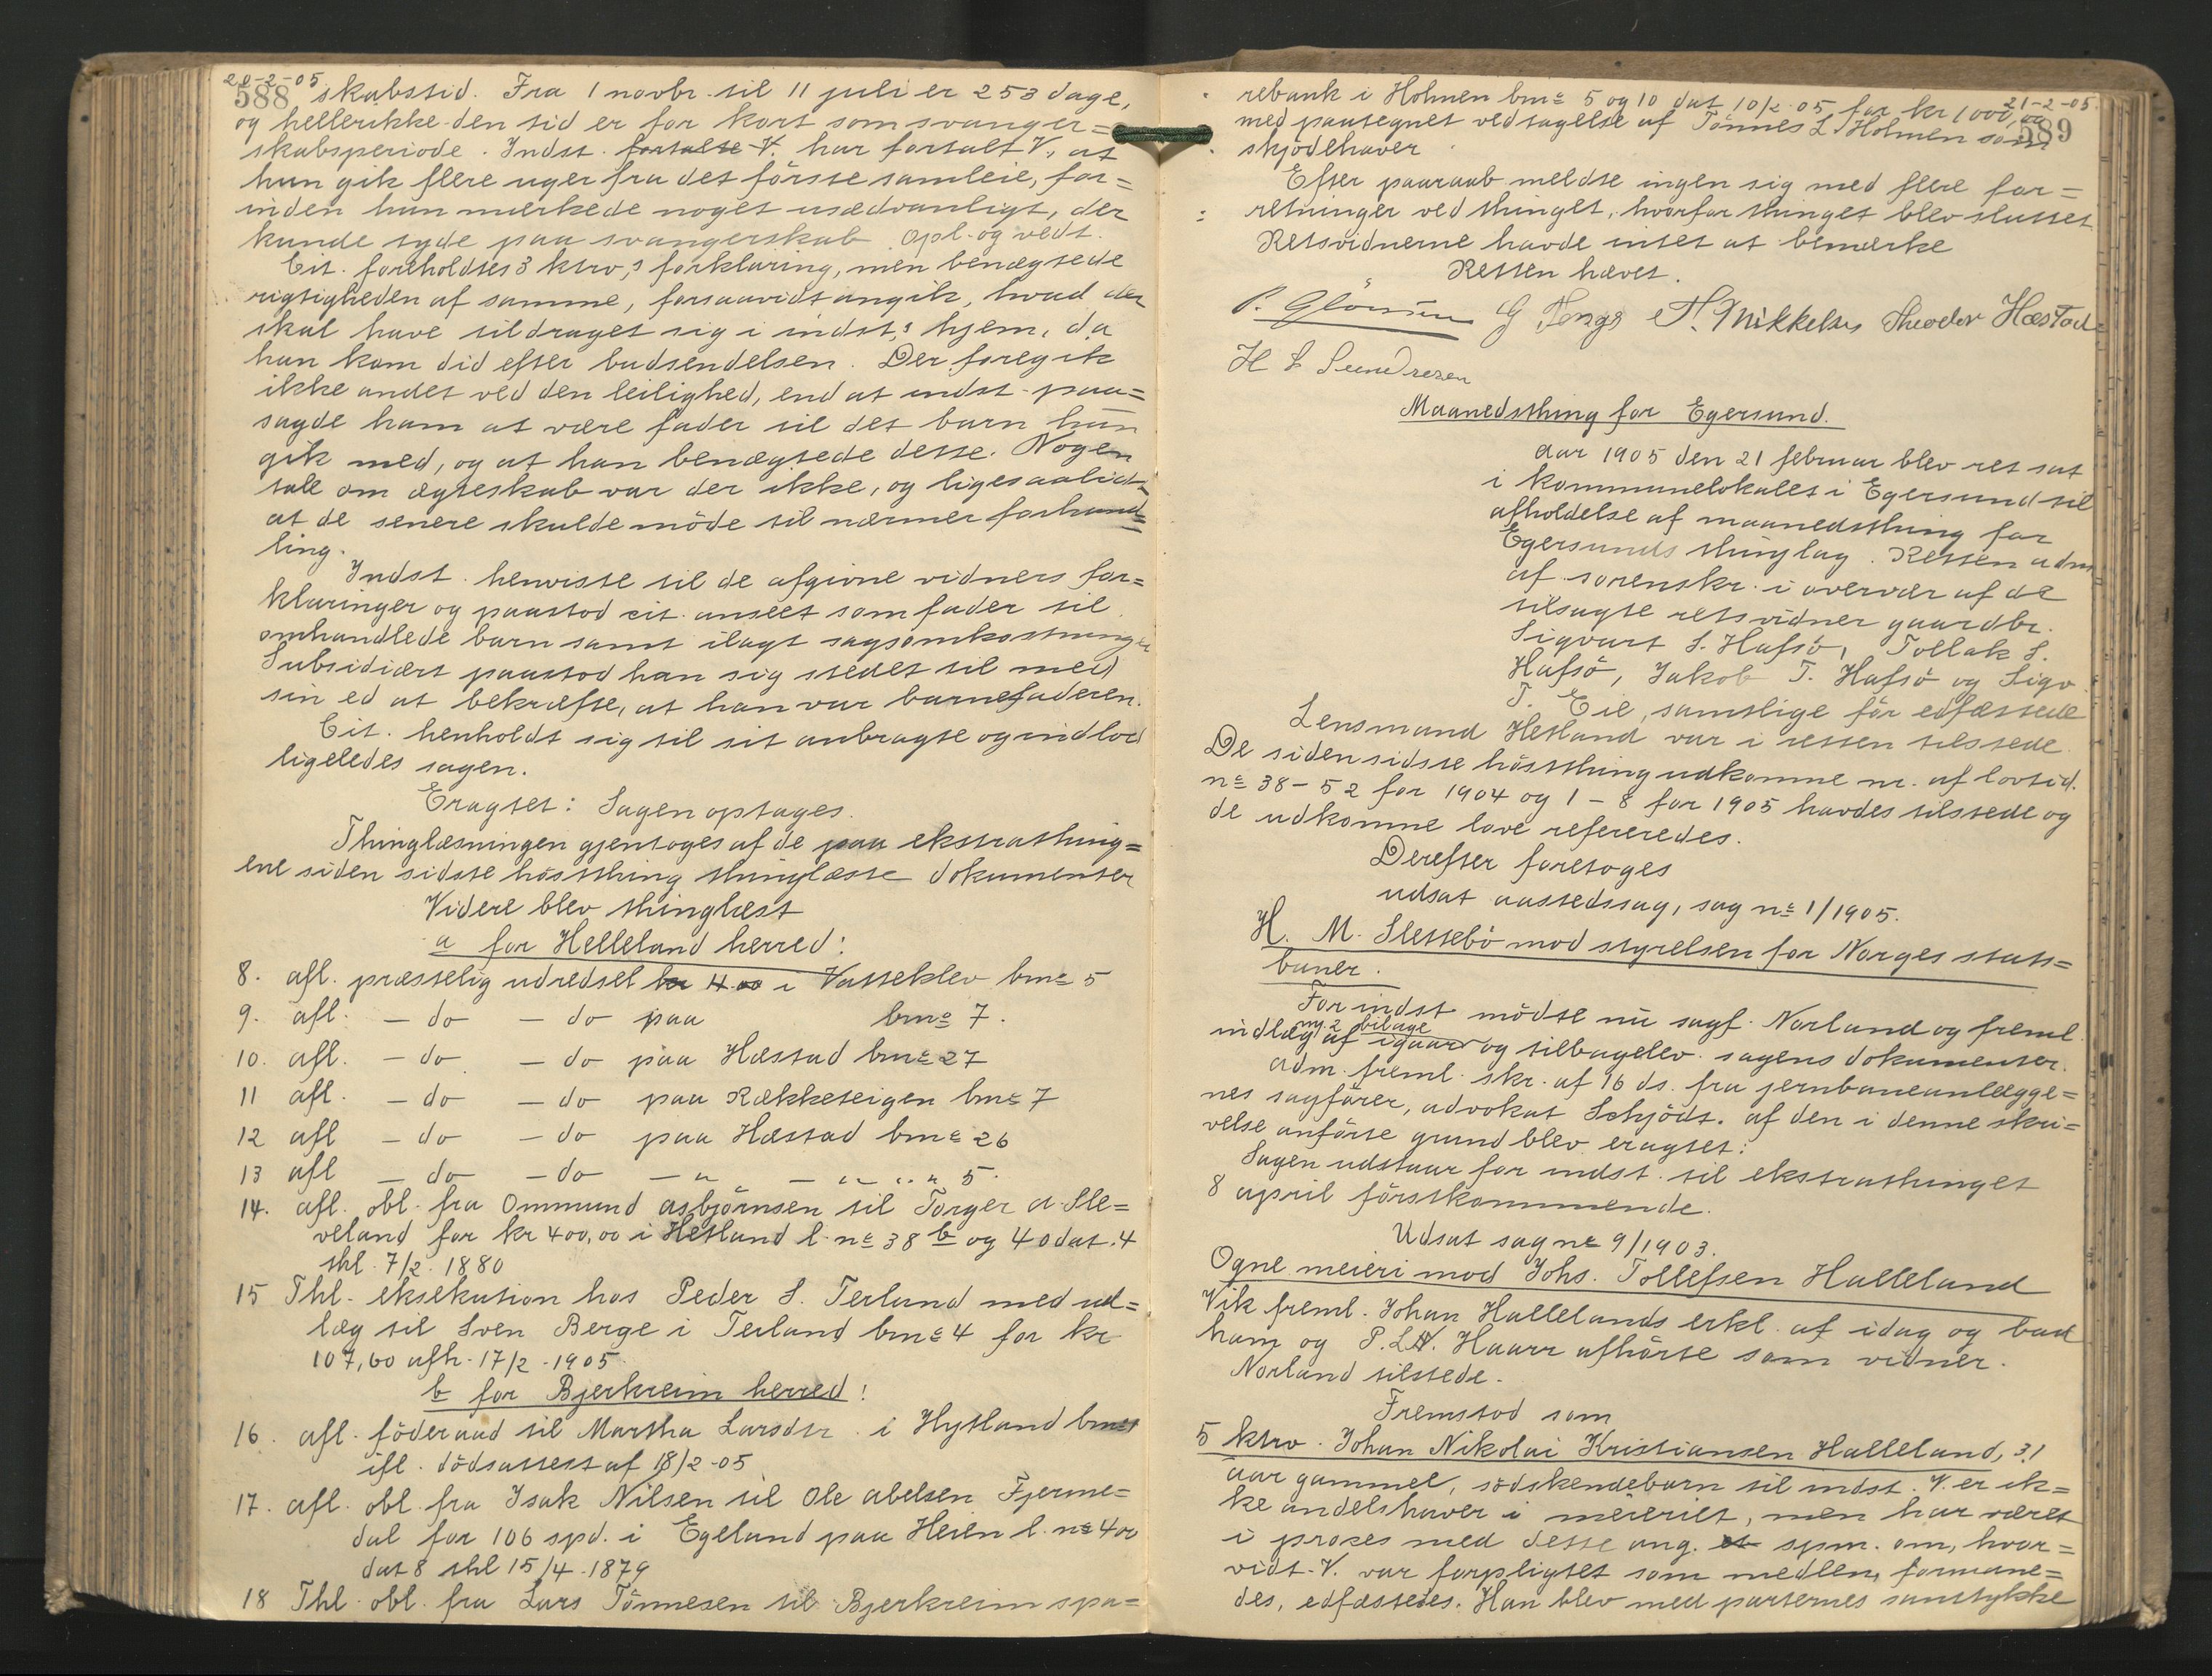 20-2-05
588 skabstid. Fra 1 novbr. til 11 juli er 253 dage,
og heller ikke den tid er for kort som svanger=
skabsperiode. Indst. fortalte V. har fortalt V., at
hun gik flere uger fra det förste samleie, for=
inden hun merkede noget usædvanligt, der
kunde tyde paa svangerskab. Opl. og vedt.
Cit. foreholdtes 3 ktrv,s forklaring, men benægtede
rigtigheden af samme, forsaavidt angik, hvad der
skal have tildraget sig i indst,s hjem, da
han kom did efter budsendelsen. Der foregik
ikke andet ved den leilighed, end at indst. paa=
sagde ham at være fader til det barn hun
gik med, og at han benægtede dette. Nogen
tale om ægteskab var der ikke, og ligesaalidt
at de senere skulde möde til nærmer forhand=
ling.
Indst. henviste til de afgivne vidners for=
klaringer og paastod cit. anseet som fader til
omhandlede barn samt ilagt sagsomkostninger
Subsidiært paastod han sig stedet til med
sin ed at bekræfte, at han var barnefaderen.
Cit. henholdt sig til sit anbragte og indlod
ligeledes sagen.
Eragtet: Sagen optages.
Thinglæsningen gjentoges af de paa ekstrathing=
ene siden sidste høstthing thinglæste dokumenter
Videre blev thinglæst
a for Helleland herred:
8. afl. præstelig udredsel kr 4.00 i Vasseklev bnº 5
9. afl. – do – do paa bnº 7.
10. afl. – do – do paa Hæstad bnº 27
11 afl. – do – do paa Rækketeigen bnº 7
12 afl – do – do paa Hæstad bnº 26
13 afl – do – do – " – " " " 5.
14. afl. obl. fra Ommund Asbjörnsen til Torger A. Sle=
veland for kr 400,00 i Hetland l. nº 38 b og 40 dat. 4
thl. 7/2. 1880
15 Thl. eksekution hos Peder S. Terland med ud=
læg til Sven Berge i Terland bnº 4 for kr
107,60 afh. 17/2. 1905.
b for Bjerkreim herred!
16. afl. föderaad til Martha Larsdtr. i Hytland bnº 1
ifl. dödsattest af 18/2-05
17. afl. obl. fra Isak Nilsen til Ole Abelsen Fjerme=
dal for 106 spd. i Egeland paa Heien l. nº 400
dat 8 thl 15/4. 1879
18 Thl. obl. fra Lars Tönnesen til Bjerkreim spa=
21-2-05.
589
rebank i Holmen bnº 5 og 10 dat 10/2.05 for kr 1000,00
med paategnet vedtagelse af Tönnes L Holmen som
skjödehaver
Efter paaraab meldte ingen sig med flere for=
retninger ved thinget, hvorfor thinget blev sluttet
Retsvidnerne havde intet at bemærke
Retten hævet.
G Tengs Mikkelsen Theodor Hæstad
H S Seeredsen
Maanedsthing for Egersund.
Aar 1905 den 21 februar blev ret sat
i kommunelokalet i Egersund til
afholdelse af maanedsthing for
Egersunds thinglag. Retten adm=
af sorenskr. i overvær af de
tilsagte retsvidner gaardbr.
Sigvart S. Hafsö, Tollak S.
Hafsö, Jakob T. Hafsö og Sigv.
T. Eie, samtlige för edfæstede
Lensmand Hetland var i retten tilstede.
De siden sidste höstthing udkomne nr. af lovtid.
nº 38–52 for 1904 og 1–8 for 1905 havdes tilstede og
de udkomne love refereredes.
Derefter foretoges
udsat aastedssag, sag nº 1/1905.
H. M. Slettebö mod styrelsen for Norges stats=
baner.
For indst mödte nu sagf. Norland og freml.
indlæg af igaar m. 2 bilage og tilbagelev. sagens dokumenter.
Adm. freml. skr. af 16 ds. fra jernbaneanlægge=
nes sagförer, advokat Schjödt. Af den i denne skri=
velse anförte grund blev eragtet:
Sagen udstaar for indst. til ekstrathinget
8 april förstkommende.
Udsat sag nº 9/1903.
Ogne meieri mod Johs. Tollefsen Halleland
Vik freml. Johan Hallelands erkl. af idag og bad
ham og P. L. N. Haarr afhörte som vidner.
Norland tilstede.
Fremstod som
5 ktrv. Johan Nikolai Kristiansen Halleland, 31
aar gammel, södskendebarn til indst. V. er ik=
ke andelshaver i meieriet, men har været
i proces med dette ang. et spm. om, hvor=
vidt V. var forpligtet som medlem, formane=
des, edfæstedes. Han blev med parternes samtykke